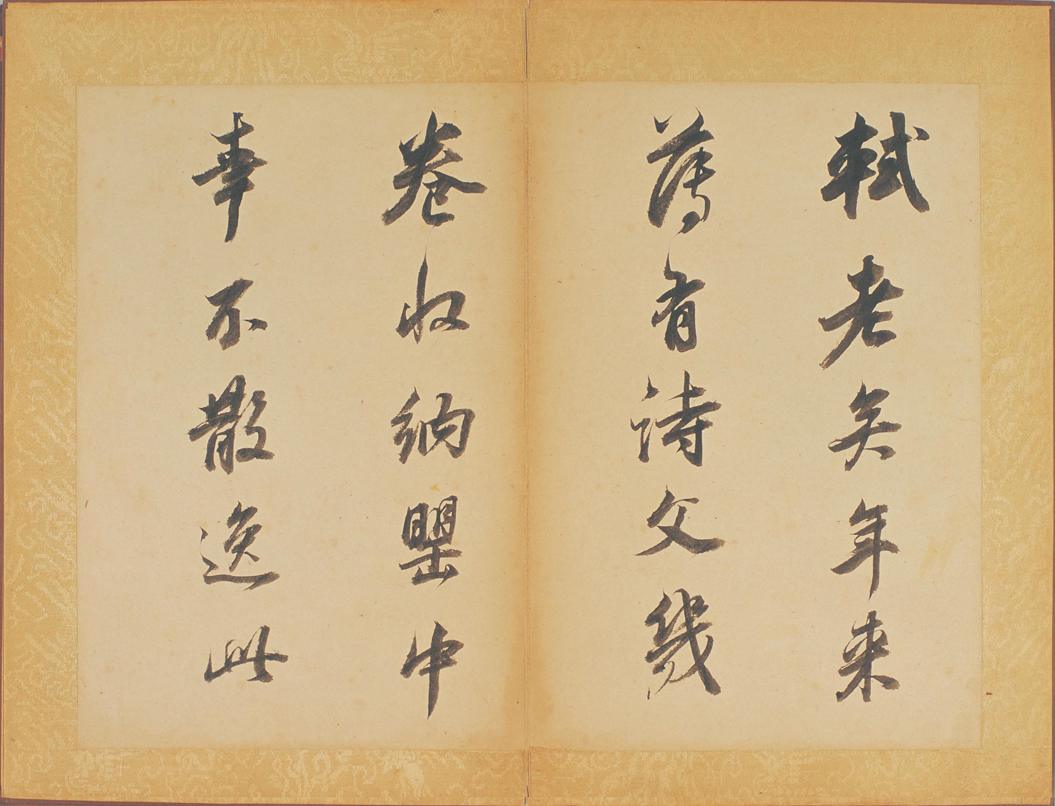 軾老矣年来
薄有詩文幾
卷収納罌中
幸不散逸此